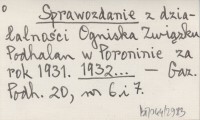 Sprawozdanie z dzia-
łalności Ogniska Związku
Podhalan w Poroninie za
rok 1931. 1932... — Gaz.
Podh. 20, nr 6 i 7.